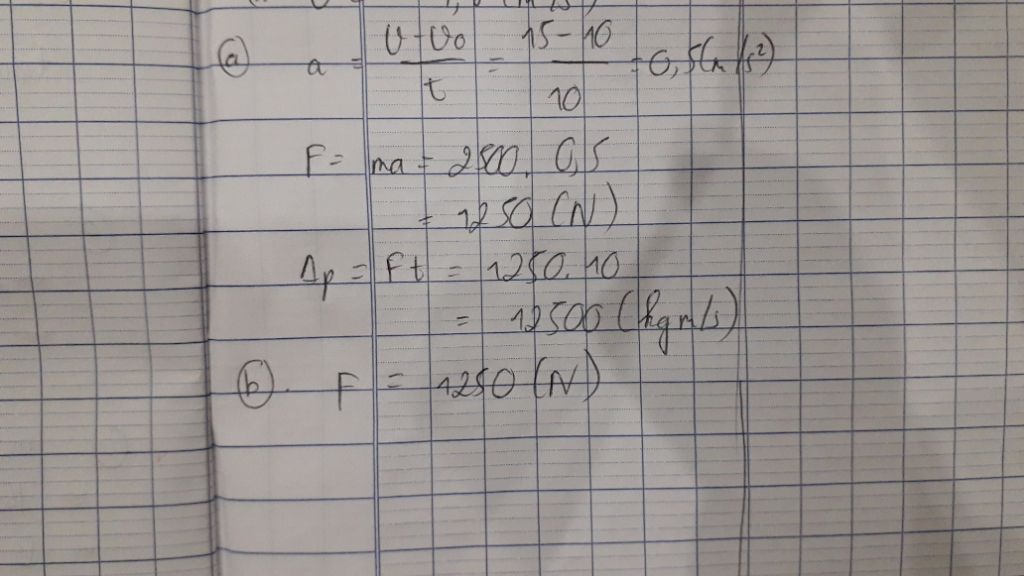 (a) a = (v - v0)/t = (15 - 10)/10 = 0,5(m/s²)
F = ma = 2500. 0,5
= 1250 (N)
Δp = Ft = 1250.10
= 12500 (kgm/s)
(b). F = 1250 (N)